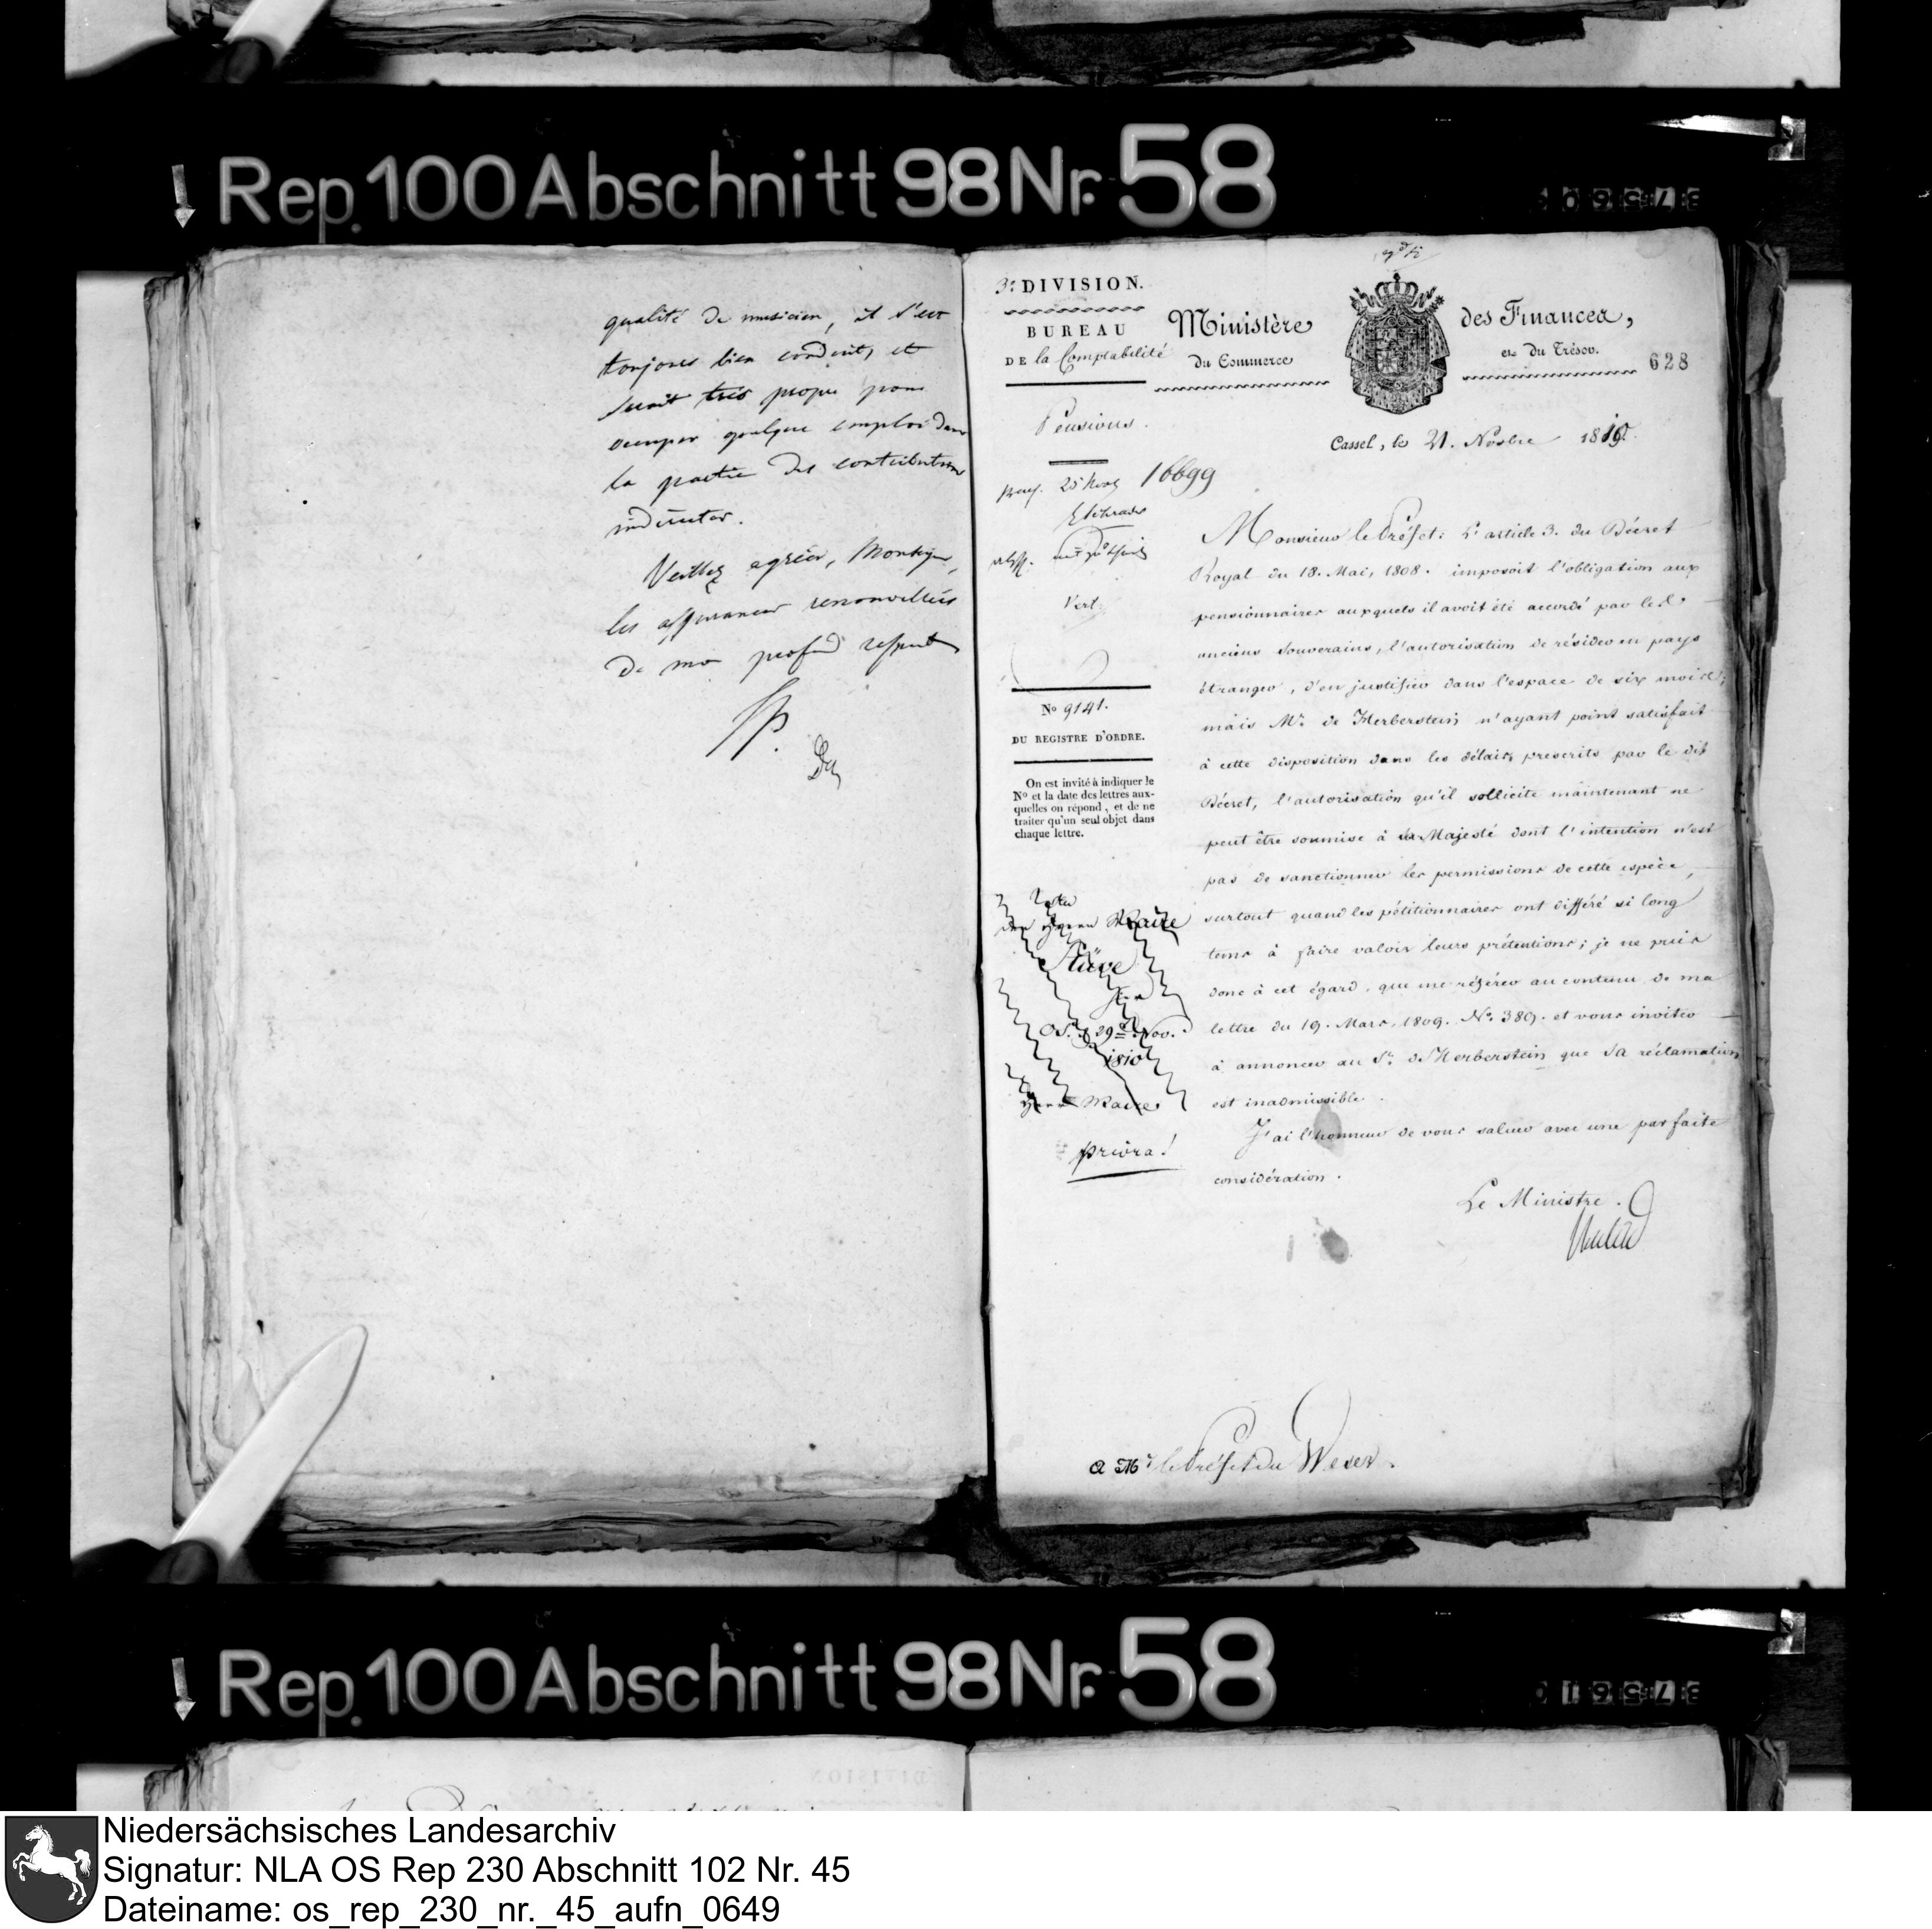 Rep. 100 Abschnitt 98 Nr. 58
qualité de musicien, il s'est
toujours bien conduit, et
serait très propre pour
occuper quelque emploi dans
la partie des contributions
indirectes.
Veuillez agréer, Monseigneur,
les assurances renouvellées
de mon profond respect
3e DIVISION.
BUREAU
DE la Comptabilité
Ministère des Finances,
du Commerce et du Trésor.
628
Pensions.
Cassel, le 21. Novbre 1810.
16699
Monsieur le Préfet: L'article 3. du Décret
Royal du 18. Mai, 1808. imposoit l'obligation aux
pensionnaires auxquels il avoit été accordé par les
anciens Souverains, l'autorisation de résider en pays
étranger, d'en justifier dans l'espace de six mois;
mais Mr. de Herberstein n'ayant point satisfait
à cette disposition dans les délais prescrits par le dit
Décret, l'autorisation qu'il sollicite maintenant ne
peut être soumise à Sa Majesté dont l'intention n'est
pas de sanctionner les permissions de cette espèce,
surtout quand les pétitionnaires ont différé si long
tems à faire valoir leurs prétentions; je ne puis
donc à cet égard, que me référer au contenu de ma
lettre du 19. Mars, 1809. No. 389. et vous inviter
à annoncer au Sr. d'Herberstein que sa réclamation
est inadmissible.
J'ai l'honneur de vous saluer avec une parfaite
considération.
Le Ministre.
No 9141.
DU REGISTRE D'ORDRE.
On est invité à indiquer le
No et la date des lettres aux-
quelles on répond, et de ne
traiter qu'un seul objet dans
chaque lettre.
Herrn Maire
Stüve
Os. d. 29t Nov.
1810
Herr Maire
priora!
A Mr. le Préfet du Weser.
Rep. 100 Abschnitt 98 Nr. 58
Niedersächsisches Landesarchiv
Signatur: NLA OS Rep 230 Abschnitt 102 Nr. 45
Dateiname: os_rep_230_nr._45_aufn_0649